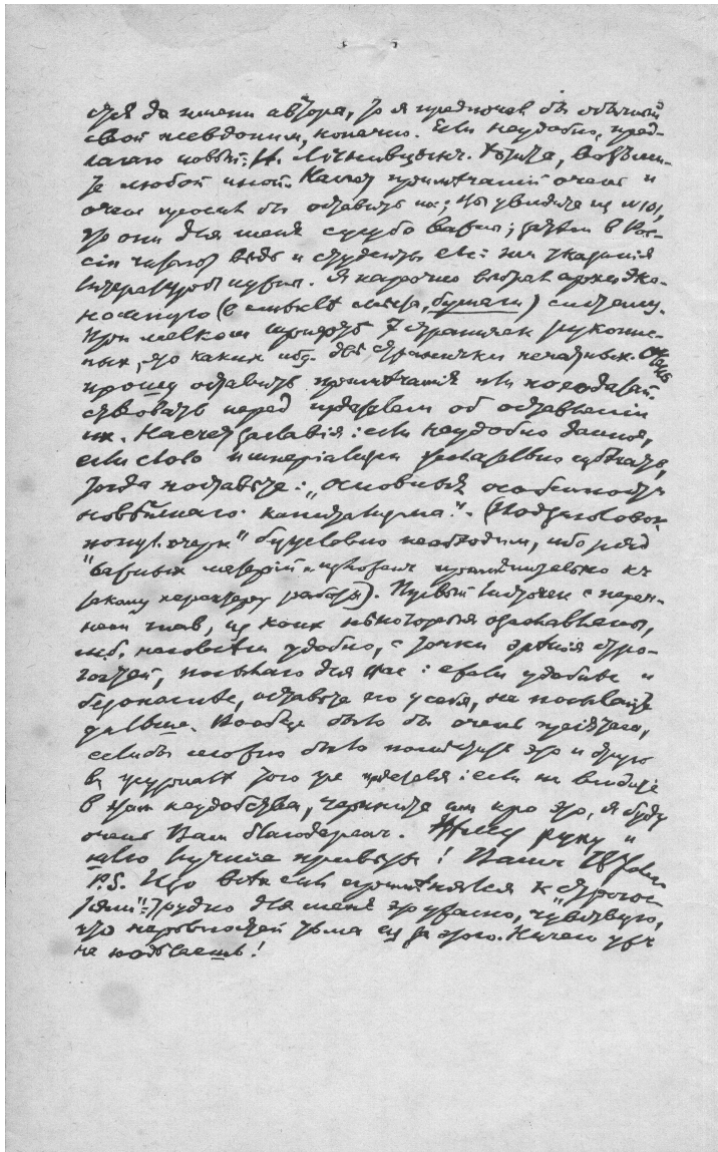 ется до имени автора, то я предпочел бы обычный
свой псевдоним, конечно. Если неудобно, пред-
лагаю новый: Н. Лѣнивцынъ. Хотите, возьми-
те любой иной. Насчет примѣчаній очень и
очень просил бы оставить их; Вы увидите из №101,
что они для меня сугубо важны; затѣм в Рос-
сіи читают вѣдь и студенты etc: им указанія
литературы нужны. Я нарочно выбрал архи эко-
номную (в смыслѣ мѣста, бумаги) систему.
При мелком шрифтѣ 7 страничек рукопис-
ных, это каких нбд. двѣ странички печатных. Очень
прошу оставить примѣчанія или походатай-
ствовать перед издателем об оставленіи
их. Насчет заглавія: если неудобно данное,
если слово империализм желательно избѣжать,
тогда поставьте: „основныя особенности
новѣйшаго капитализма". (Подзаголовок
попул. очерк" безусловно необходим, ибо ряд
важных матерій изложен примѣнительно къ
такому характеру работы). Первый листочек с переч-
нем глав, из коих нѣкоторыя озаглавлены,
м.б. несовсѣм удобно, с точки зрѣнія стро-
гостей, посылаю для Вас: если удобнѣе и
безопаснѣе, оставьте его у себя, не посылайте
дальше. Вообще было бы очень пріятно,
если бы можно было помѣстить это и другую
в журналѣ того же издателя: если не видите
в этом неудобства, черкните им про это, я буду
очень Вам благодарен. Жму руку и
шлю лучшіе привѣты! Ваш В Ульянов
P.S. Изо всѣх сил примѣнялся к „строгос-
тям". Трудно для меня это ужасно, чувствую,
что неровностей тьма из за этого. Ничего уж
не подѣлаешь!